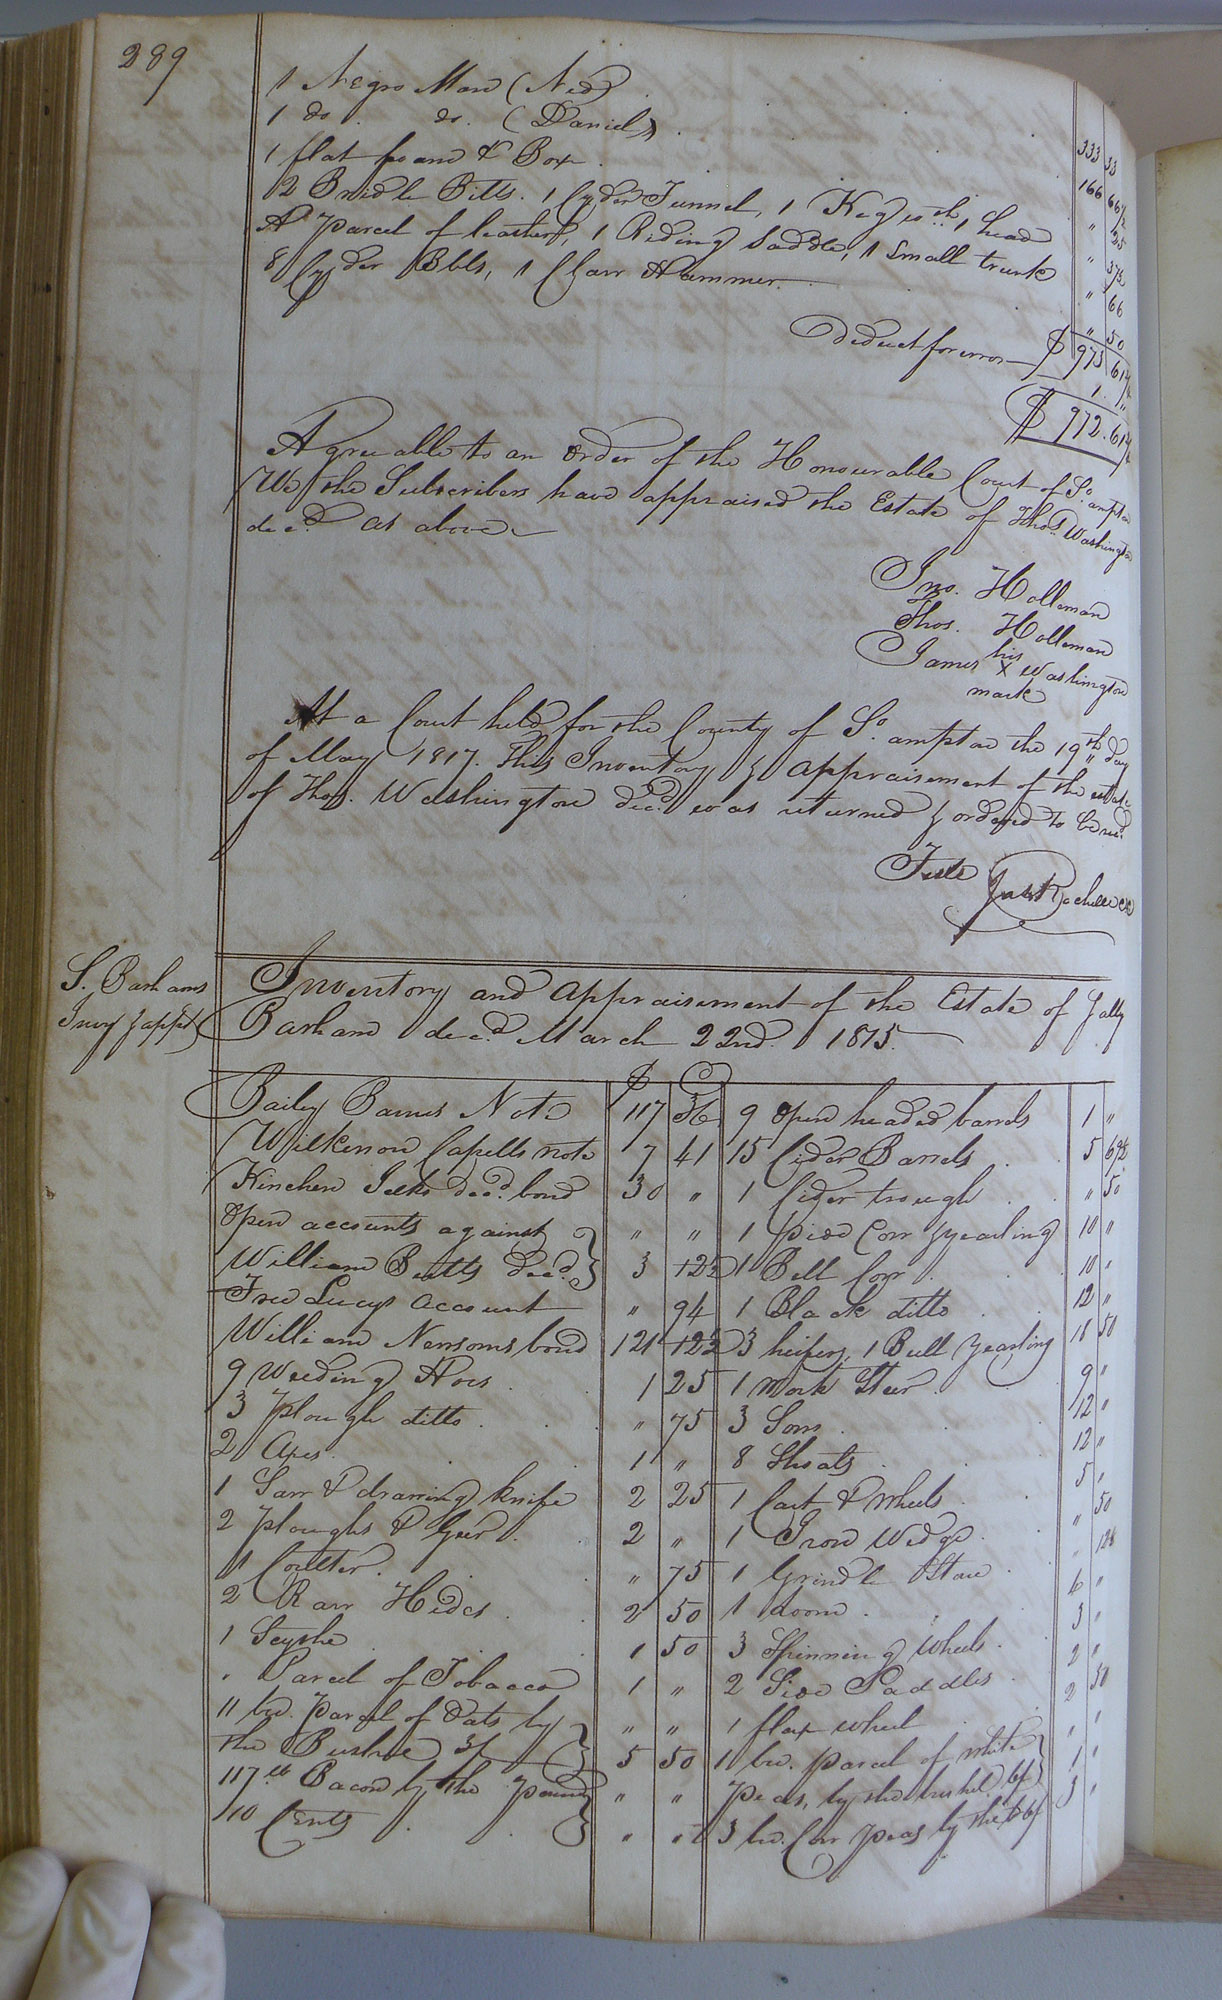 289
1 Negro Man (Ned) 333 33
1 do. do. (Daniel) 166 66 1/2
1 flat & Box " 25
2 Bridle Bitts. 1 Cyder Funnel, 1 Keg, 1 " 37 1/2
A parcel of leather, 1 Riding Saddle, 1 small trunk " 66
8 Cyder Bbls, 1 Hammer " 50
$ 973 61 1/2
Deduct for error 1. "
$ 972.61 1/2
Agreeable to an Order of the Honourable Court of So. ampton
We the Subscribers have appraised the Estate of Thos. Washington
decd. as above
Jno. Holleman
Thos. Holleman
his
James X Washington
mark
At a Court held for the County of So. ampton the 19th day
of May 1817. This Inventory & appraisement of the estate
of Thos. Washington decd. was returned & ordered to be recd.
Teste Jas Rochelle CC
S. Barhams
Invy & appt
Inventory and appraisement of the Estate of Sally
Barham decd. March 22nd. 1815.
$ C
Baily Barnes Note 117 36 9 open headed barrels 1 "
Wilkinson Capells note 7 41 15 Cider Barrels 5 62 1/2
Kinchen decd. bond 30 " 1 Cider trough " 50
Open accounts against " " 1 pied Cow & yearling 10 "
William Butts decd. 3 12 1/2 1 Bell Cow 10 "
Lucys account " 94 1 Black ditto 12 "
William Newsoms bond 121 12 1/2 3 heifers, 1 Bull yearling 18 50
9 Weeding Hoes 1 25 1 Work Steer 9 "
3 plough ditto " 75 3 Sows 12 "
2 Axes 1 " 8 Shoats 12 "
1 Saw & drawing knife 2 25 1 Cart & wheels 5 "
2 ploughs & Geer 2 " 1 Iron Wedge " 50
1 Coulter " 75 1 Grindle Stone
2 Raw Hides 2 50 1 Loom 6 "
1 Scythe 1 50 3 Spinning wheels 3 "
1 Parcel of Tobacco 1 " 2 Side Saddles 2 "
11 bu. parcel of Oats by " " 1 flax wheel 2 50
the Bushel 3/ 5 50 1 bu. parcel of white " "
117 lb Bacon by the pound " " Peas, by the bushel 6/ 1 "
10 Cents 3 bu. Cow peas by the 6/ 3 "